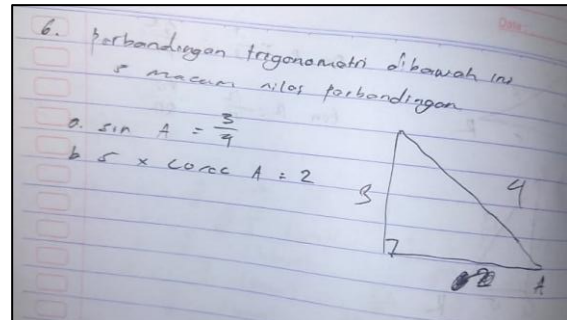 Date
6. perbandingan trigonometri dibawah ini
5 macam nilai perbandingan
a. sin A = 3/4
b 5 × cosec A = 2
3
4
A